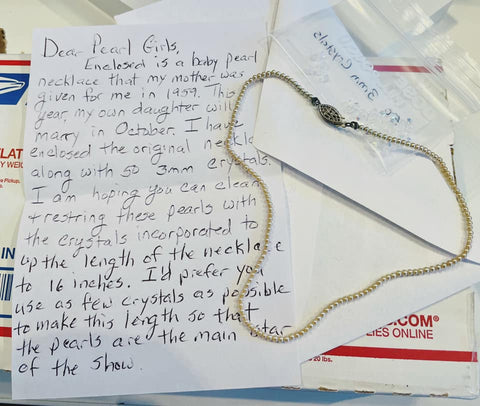 Dear Pearl Girls,
Enclosed is a baby pearl
necklace that my mother was
given for me in 1959. This
year, my own daughter will
marry in October. I have
enclosed the original neckla
along with 50 3mm crystals.
I am hoping you can clean
+ restring these pearls with
the crystals incorporated to
up the length of the necklace
to 16 inches. I'd prefer you
use as few crystals as possible
to make this length so that
the pearls are the main star
of the show.
3mm Crystals
FLAT
WEIG
Pickup.
IN
.COM®
IES ONLINE
20 lbs.